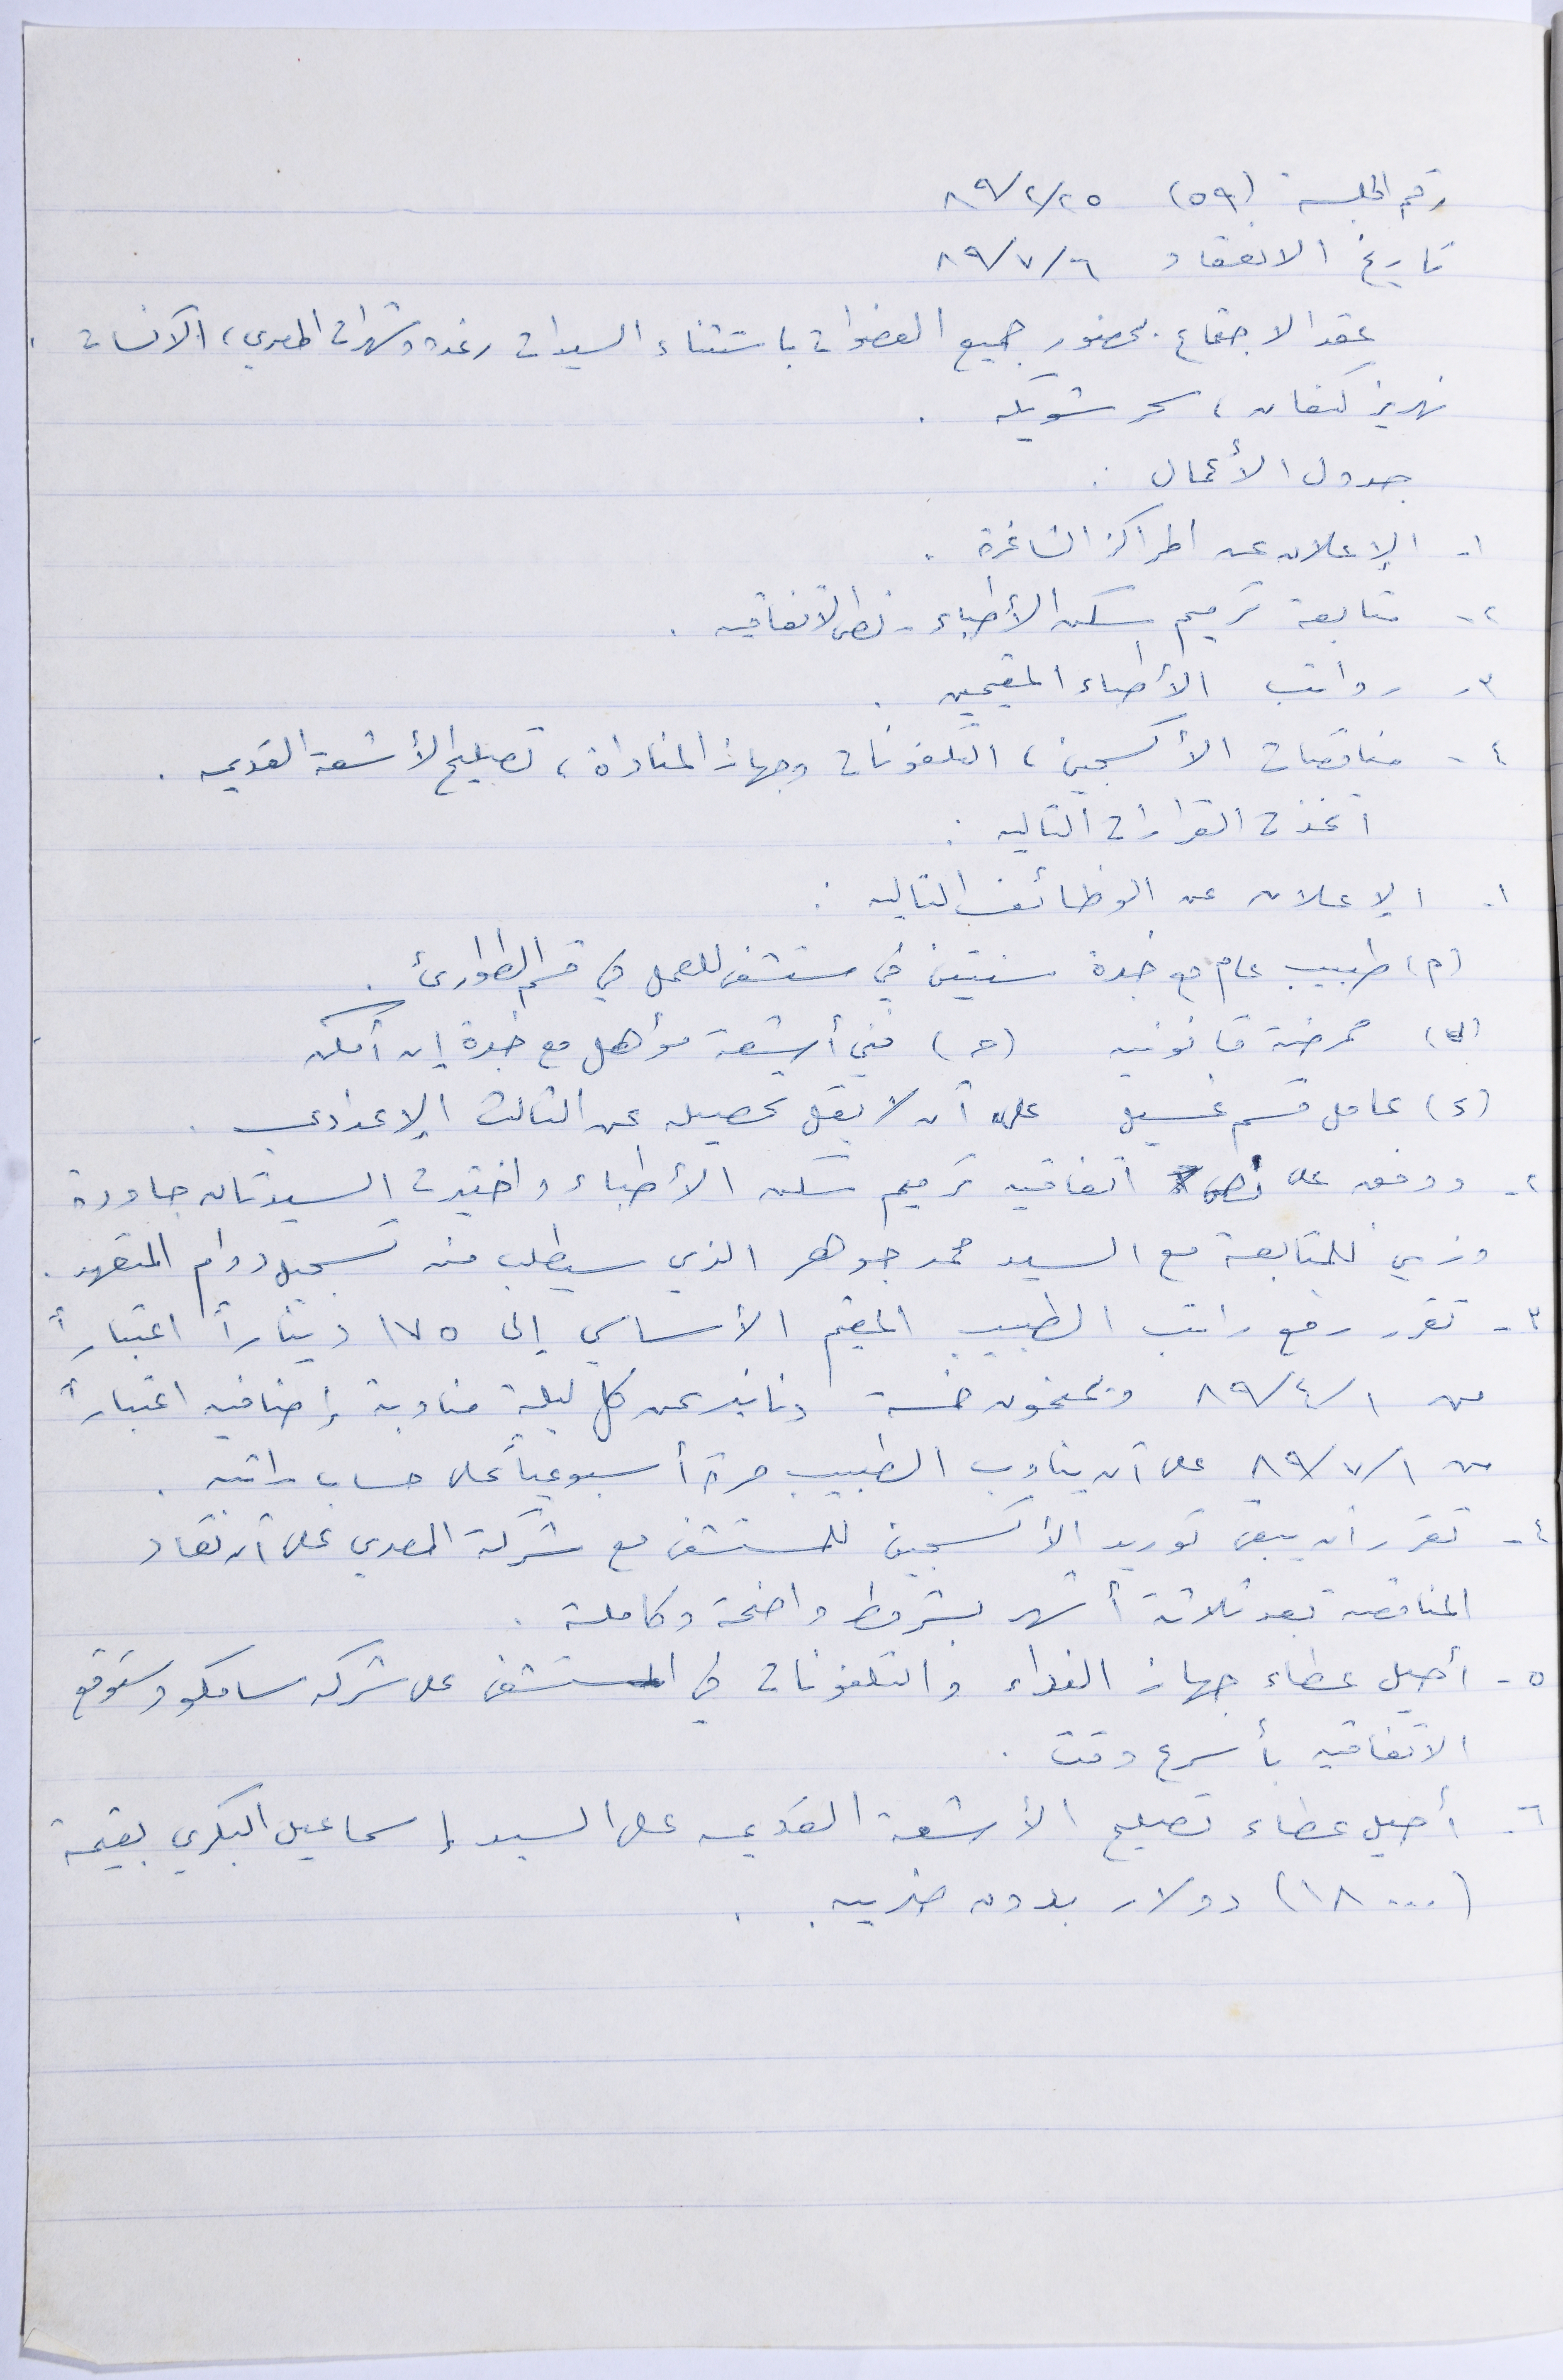 رقم الجلسة (٥٩) ٨٩/٢/٢٥
تاريخ الانعقاد ٨٩/٧/٦
عقد الاجتماع بحضور جميع العضوات باستثناء السيدات رغدة وشهرات المصري، الآنسات
نهريز كنعان، سحر شويكه .
جدول الأعمال :
١- الإعلان عن المراكز الشاغرة .
٢- متابعة ترميم سكن الأطباء - نص الاتفاقيه .
٣- رواتب الأطباء المقيمين .
٤- مناقصات الأكسجين، التلفونات وجهاز المناداة، تصليح الأشعة القديمه .
اتخذت القرارات التاليه :
١- الإعلان عن الوظائف التاليه :
(أ) طبيب عام مع خبرة سنتين في مستشفى للعمل في قسم الطوارئ .
(ب) ممرضة قانونيه (ج) فني أشعة مؤهل مع خبرة إن أمكن
(د) عامل قسم غسيل على أن لا يقل تحصيله عن الثالث الإعدادي .
٢- ووفق على نص اتفاقيه ترميم سكن الأطباء واختيرت السيدتان جاودة
وزيي للمتابعة مع السيد محمد جوهر الذي سيطلب منه تسجيل دوام المتعهد .
٣- تقرر رفع راتب الطبيب المقيم الأساسي إلى ١٧٥ ديناراً اعتباراً
من ٨٩/٤/١ ويمنحون خمسة دنانير عن كل ليلة مناوبة إضافيه اعتباراً
من ٨٩/٧/١ على أن يناوب الطبيب مرة أسبوعياً على حساب راتبه .
٤- تقرر أن يبقى توريد الأكسجين للمستشفى مع شركة المصري على أن تعاد
المناقصه بعد ثلاثة أشهر بشروط واضحة وكاملة .
٥- أحيل عطاء جهاز النداء والتلفونات في المستشفى على شركه سامكو وستوقع
الاتفاقيه بأسرع وقت .
٦- أحيل عطاء تصليح الأشعة القديمه على السيد إسماعيل البكري بقيمة
(١٨٠٠٠) دولار بدون ضريبه .